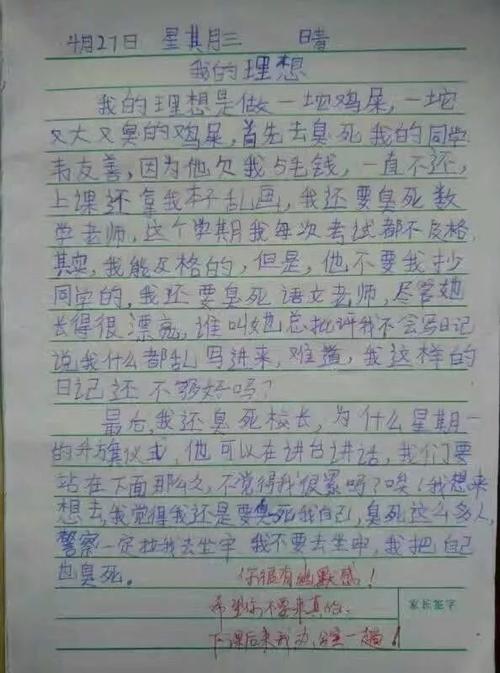 4月27日 星其月三 晴
我的理想
我的理想是做一坨鸡屎,一坨
又大又臭的鸡屎,首先去臭死我的同学
韦友善,因为他欠我5毛钱,一直不还,
上课还拿我本子乱画,我还要臭死数
学老师,这个学期我每次考试都不及格,
其实,我能及格的,但是,他不要我抄
同学的,我还要臭死语文老师,尽管她
长得很漂亮,谁叫她总批评我不会写日记
说我什么都乱写进来,难道,我这样的
日记还不够好吗?
最后,我还臭死校长,为什么星期一
的升旗仪式,他可以在讲台讲话,我们要
站在下面那么久,不觉得我很累吗?唉!我想来
想去,我觉得我还是要臭死我自己,臭死这么多人,
警察一定拉我去坐牢 我不要去坐牢,我把自己
也臭死。
你很有幽默感!
希望你不要来真的。
下课后来我办公室一趟!
家长签字